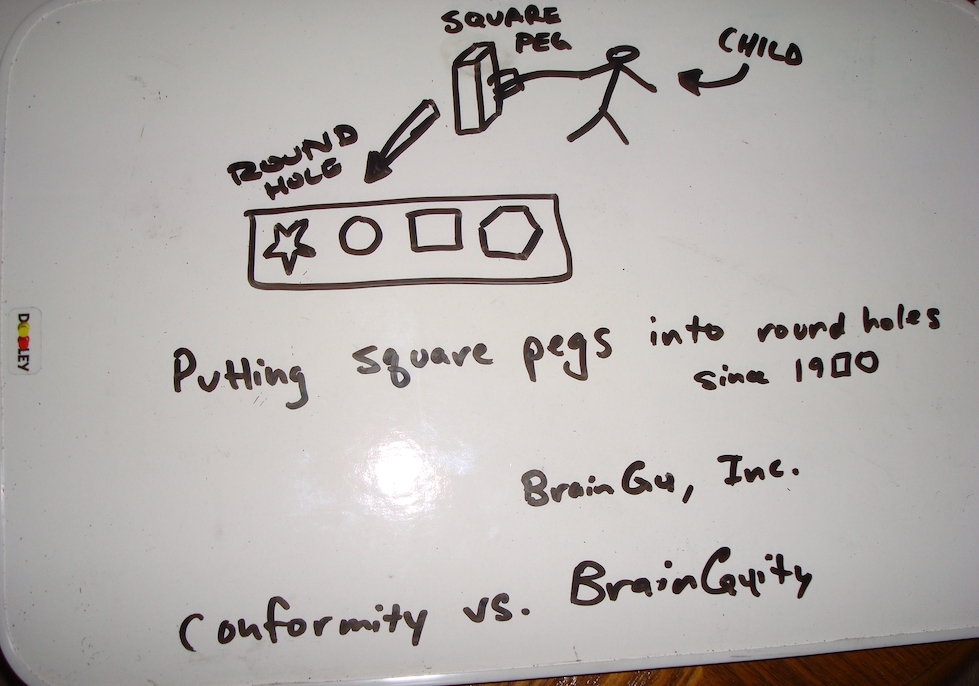 SQUARE
PEG
CHILD
ROUND
HOLE
Putting square pegs into round holes
since 19□0
BrainGu, Inc.
Conformity vs. BrainGuity
DOOLEY